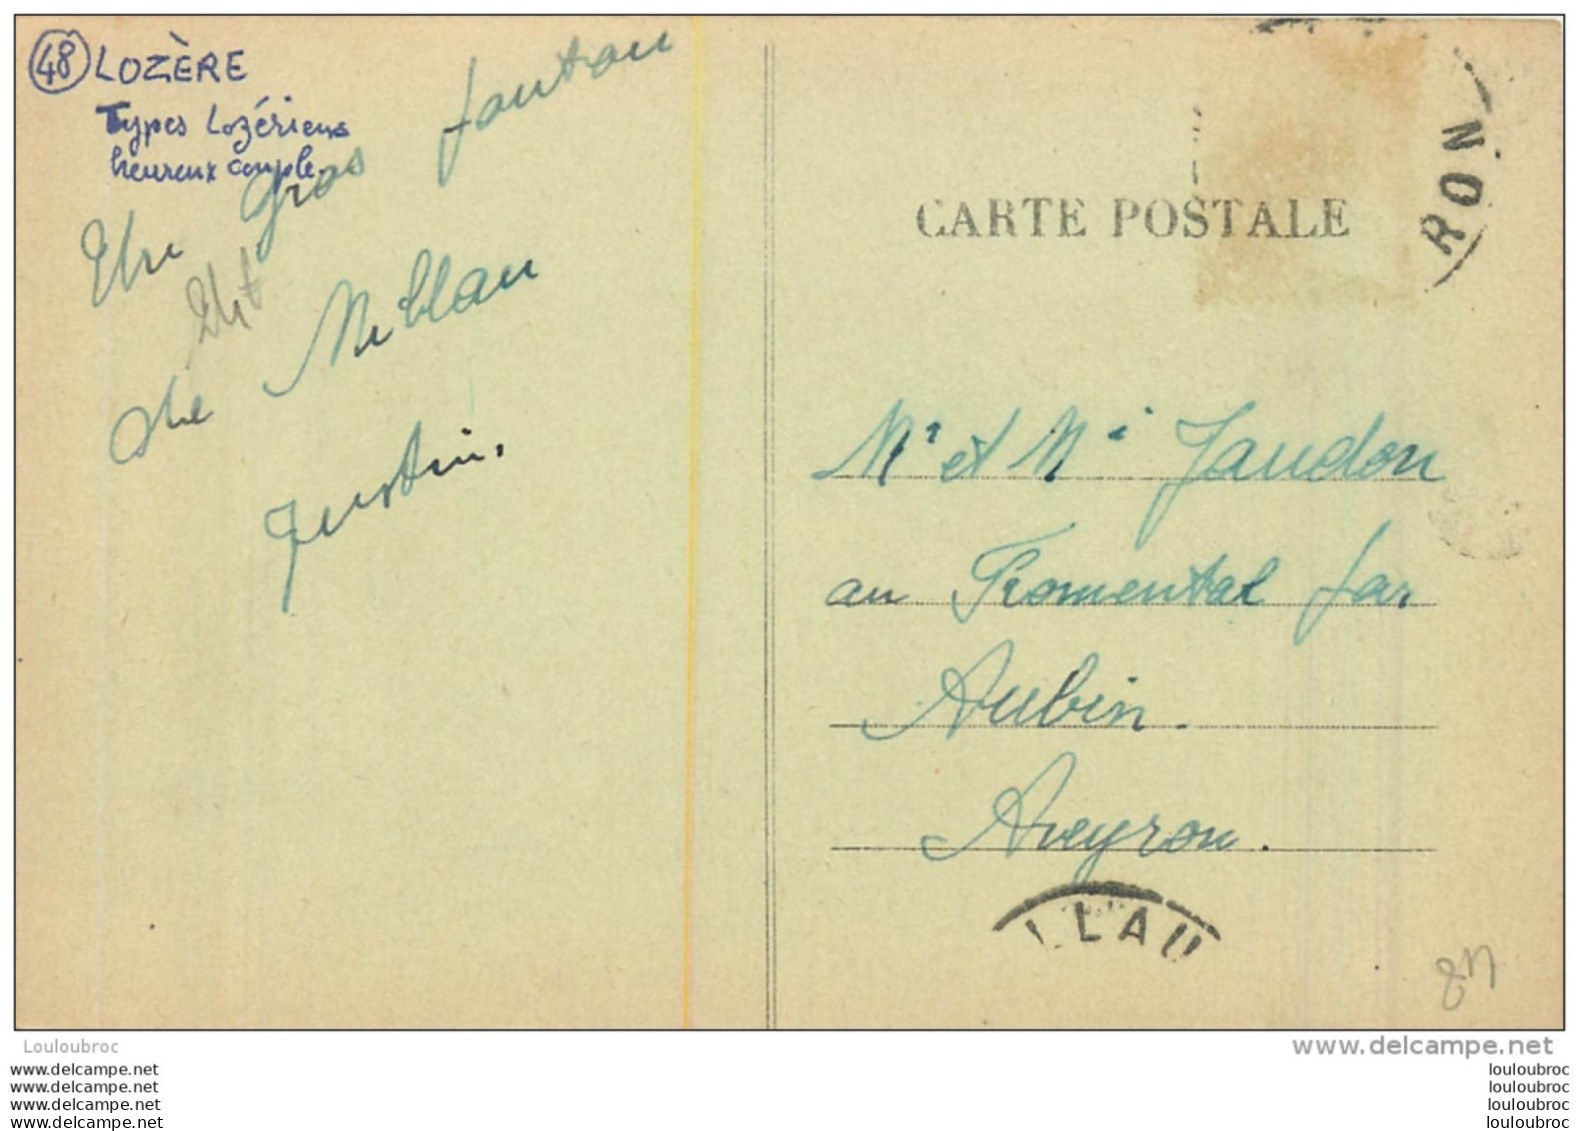 48 LOZÈRE
Types Lozériens
heureux couple.
Un gros fouton
de Millau
Justin.
CARTE POSTALE
RON
Mr et Me Jaudon
au Fromental par
Aubin.
Aveyron.
LLAU
Louloubroc
www.delcampe.net
www.delcampe.net
www.delcampe.net
www.delcampe.net
www.delcampe.net
louloubroc
louloubroc
louloubroc
louloubroc